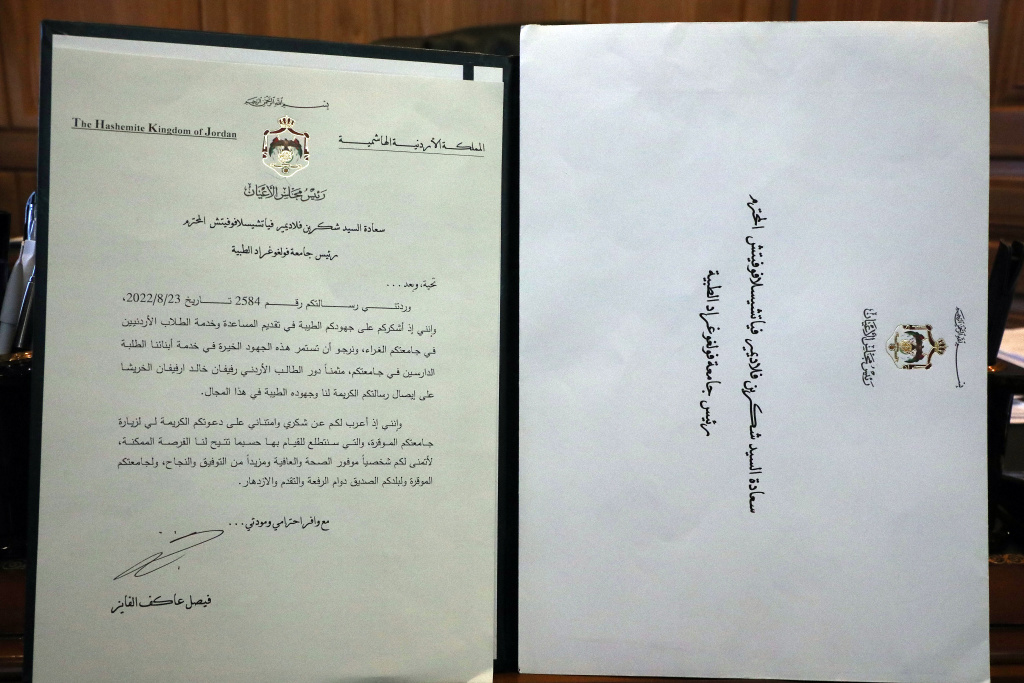 بسم الله الرحمن الرحيم
The Hashemite Kingdom of Jordan
المملكة الأردنية الهاشمية
رئيس مجلس الأعيان
سعادة السيد شكرين فلاديمير فياتشيسلافوفيتش المحترم
رئيس جامعة فولغوغراد الطبية
تحية، وبعد ...
وردتني رسالتكم رقم 2584 تاريخ 2022/8/23،
وإنني إذ أشكركم على جهودكم الطيبة في تقديم المساعدة وخدمة الطلاب الأردنيين
في جامعتكم الغراء، ونرجو أن تستمر هذه الجهود الخيرة في خدمة أبنائنا الطلبة
الدارسين في جامعتكم، مثمناً دور الطالب الأردني رفيفان خالد ارفيفان الخريشا
على إيصال رسالتكم الكريمة لنا وجهوده الطيبة في هذا المجال.
وإنني إذ أعرب لكم عن شكري وامتناني على دعوتكم الكريمة لي لزيارة
جامعتكم الموقرة، والتي سنتطلع للقيام بها حسبما تتيح لنا الفرصة الممكنة،
لأتمنى لكم شخصياً موفور الصحة والعافية ومزيداً من التوفيق والنجاح، ولجامعتكم
الموقرة ولبلدكم الصديق دوام الرفعة والتقدم والازدهار.
مع وافر احترامي ومودتي...
فيصل عاكف الفايز
بسم الله الرحمن الرحيم
رئيس مجلس الأعيان
سعادة السيد شكرين فلاديمير فياتشيسلافوفيتش المحترم
رئيس جامعة فولغوغراد الطبية